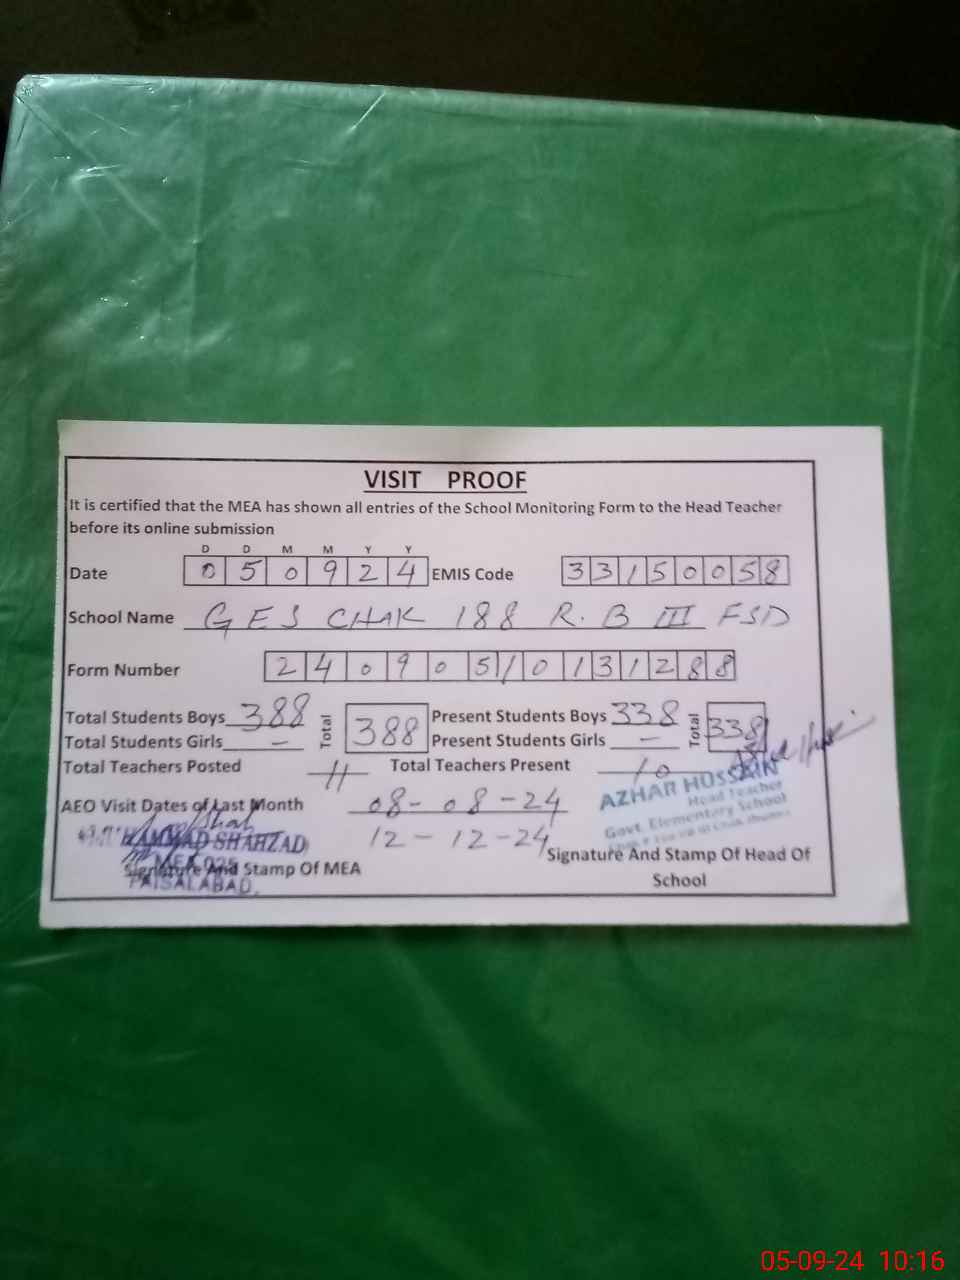 VISIT PROOF
It is certified that the MEA has shown all entries of the School Monitoring Form to the Head Teacher
before its online submission
D D M M Y Y
Date 0 5 0 9 2 4 EMIS Code 3 3 1 5 0 0 5 8
School Name GES CHAK 188 R.B III FSD
Form Number 2 4 0 9 0 5 1 0 1 3 1 2 8 8
Total Students Boys 388 Total 388 Present Students Boys 338 Total 338
Total Students Girls - Present Students Girls -
Total Teachers Posted 11 Total Teachers Present 10
AZHAR HUSSAIN
Head Teacher
Govt. Elementary School
AEO Visit Dates of Last Month 08-08-24
12-12-24
HAMMAD SHAHZAD
MEA
FAISALABAD.
Signature And Stamp Of MEA
Signature And Stamp Of Head Of
School
05-09-24 10:16